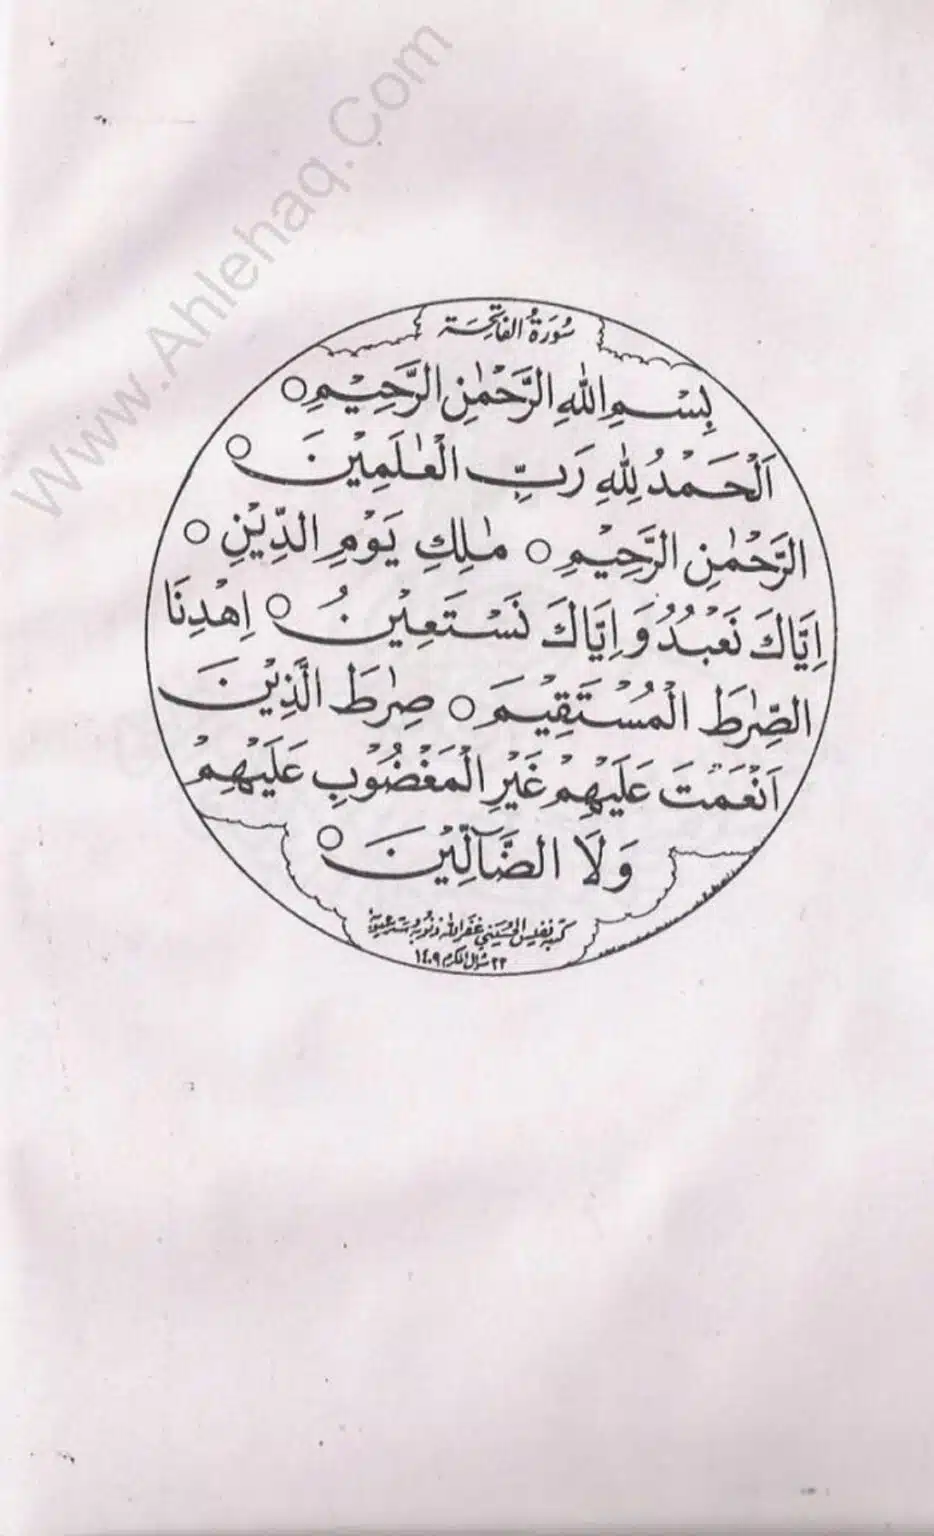 Www.Ahlehaq.Com
سُورَةُ الفَاتِحَة
بِسْمِ اللهِ الرَّحْمٰنِ الرَّحِيْمِ○
اَلْحَمْدُ لِلّٰهِ رَبِّ الْعٰلَمِيْنَ○
الرَّحْمٰنِ الرَّحِيْمِ○ مٰلِكِ يَوْمِ الدِّيْنِ○
اِيَّاكَ نَعْبُدُ وَ اِيَّاكَ نَسْتَعِيْنُ○ اِهْدِنَا
الصِّرٰطَ الْمُسْتَقِيْمَ○ صِرٰطَ الَّذِيْنَ
اَنْعَمْتَ عَلَيْهِمْ غَيْرِ الْمَغْضُوْبِ عَلَيْهِمْ
وَلَا الضَّآلِّيْنَ○
كتبه نفيس الحسيني غفر الله ذنوبه وستر عيوبه
٢٢ شوال المكرم ١٤٠٩